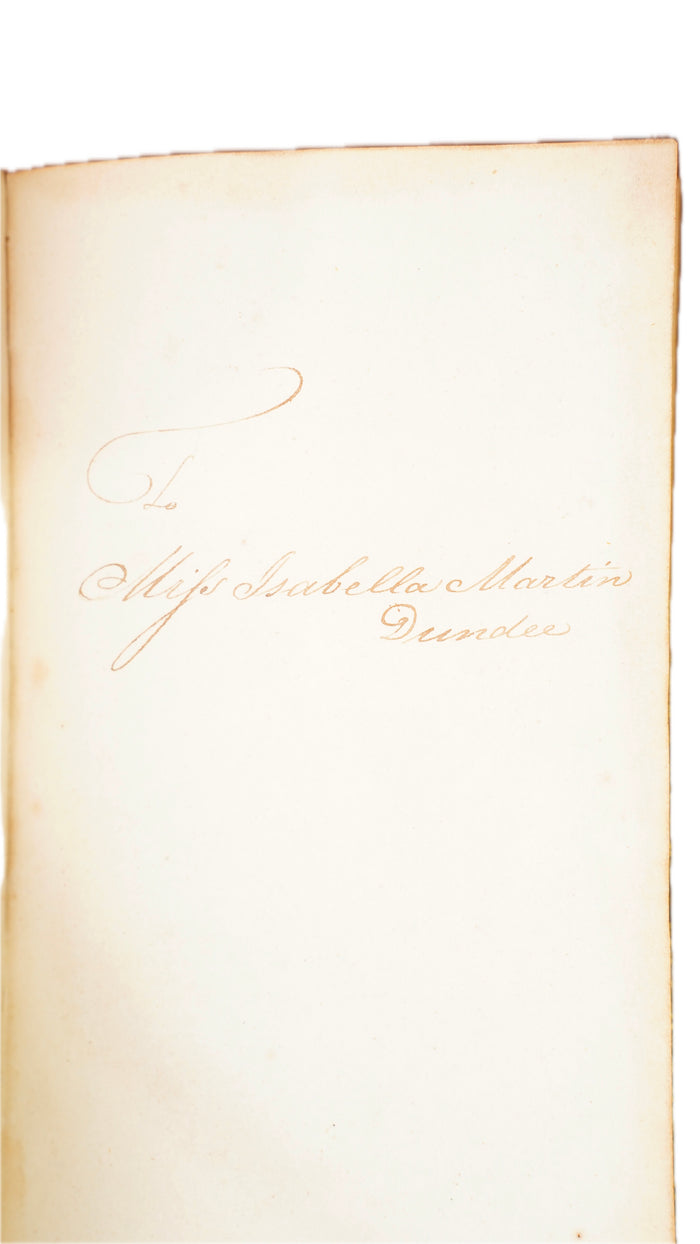 To
Miſs Isabella Martin
Dundee